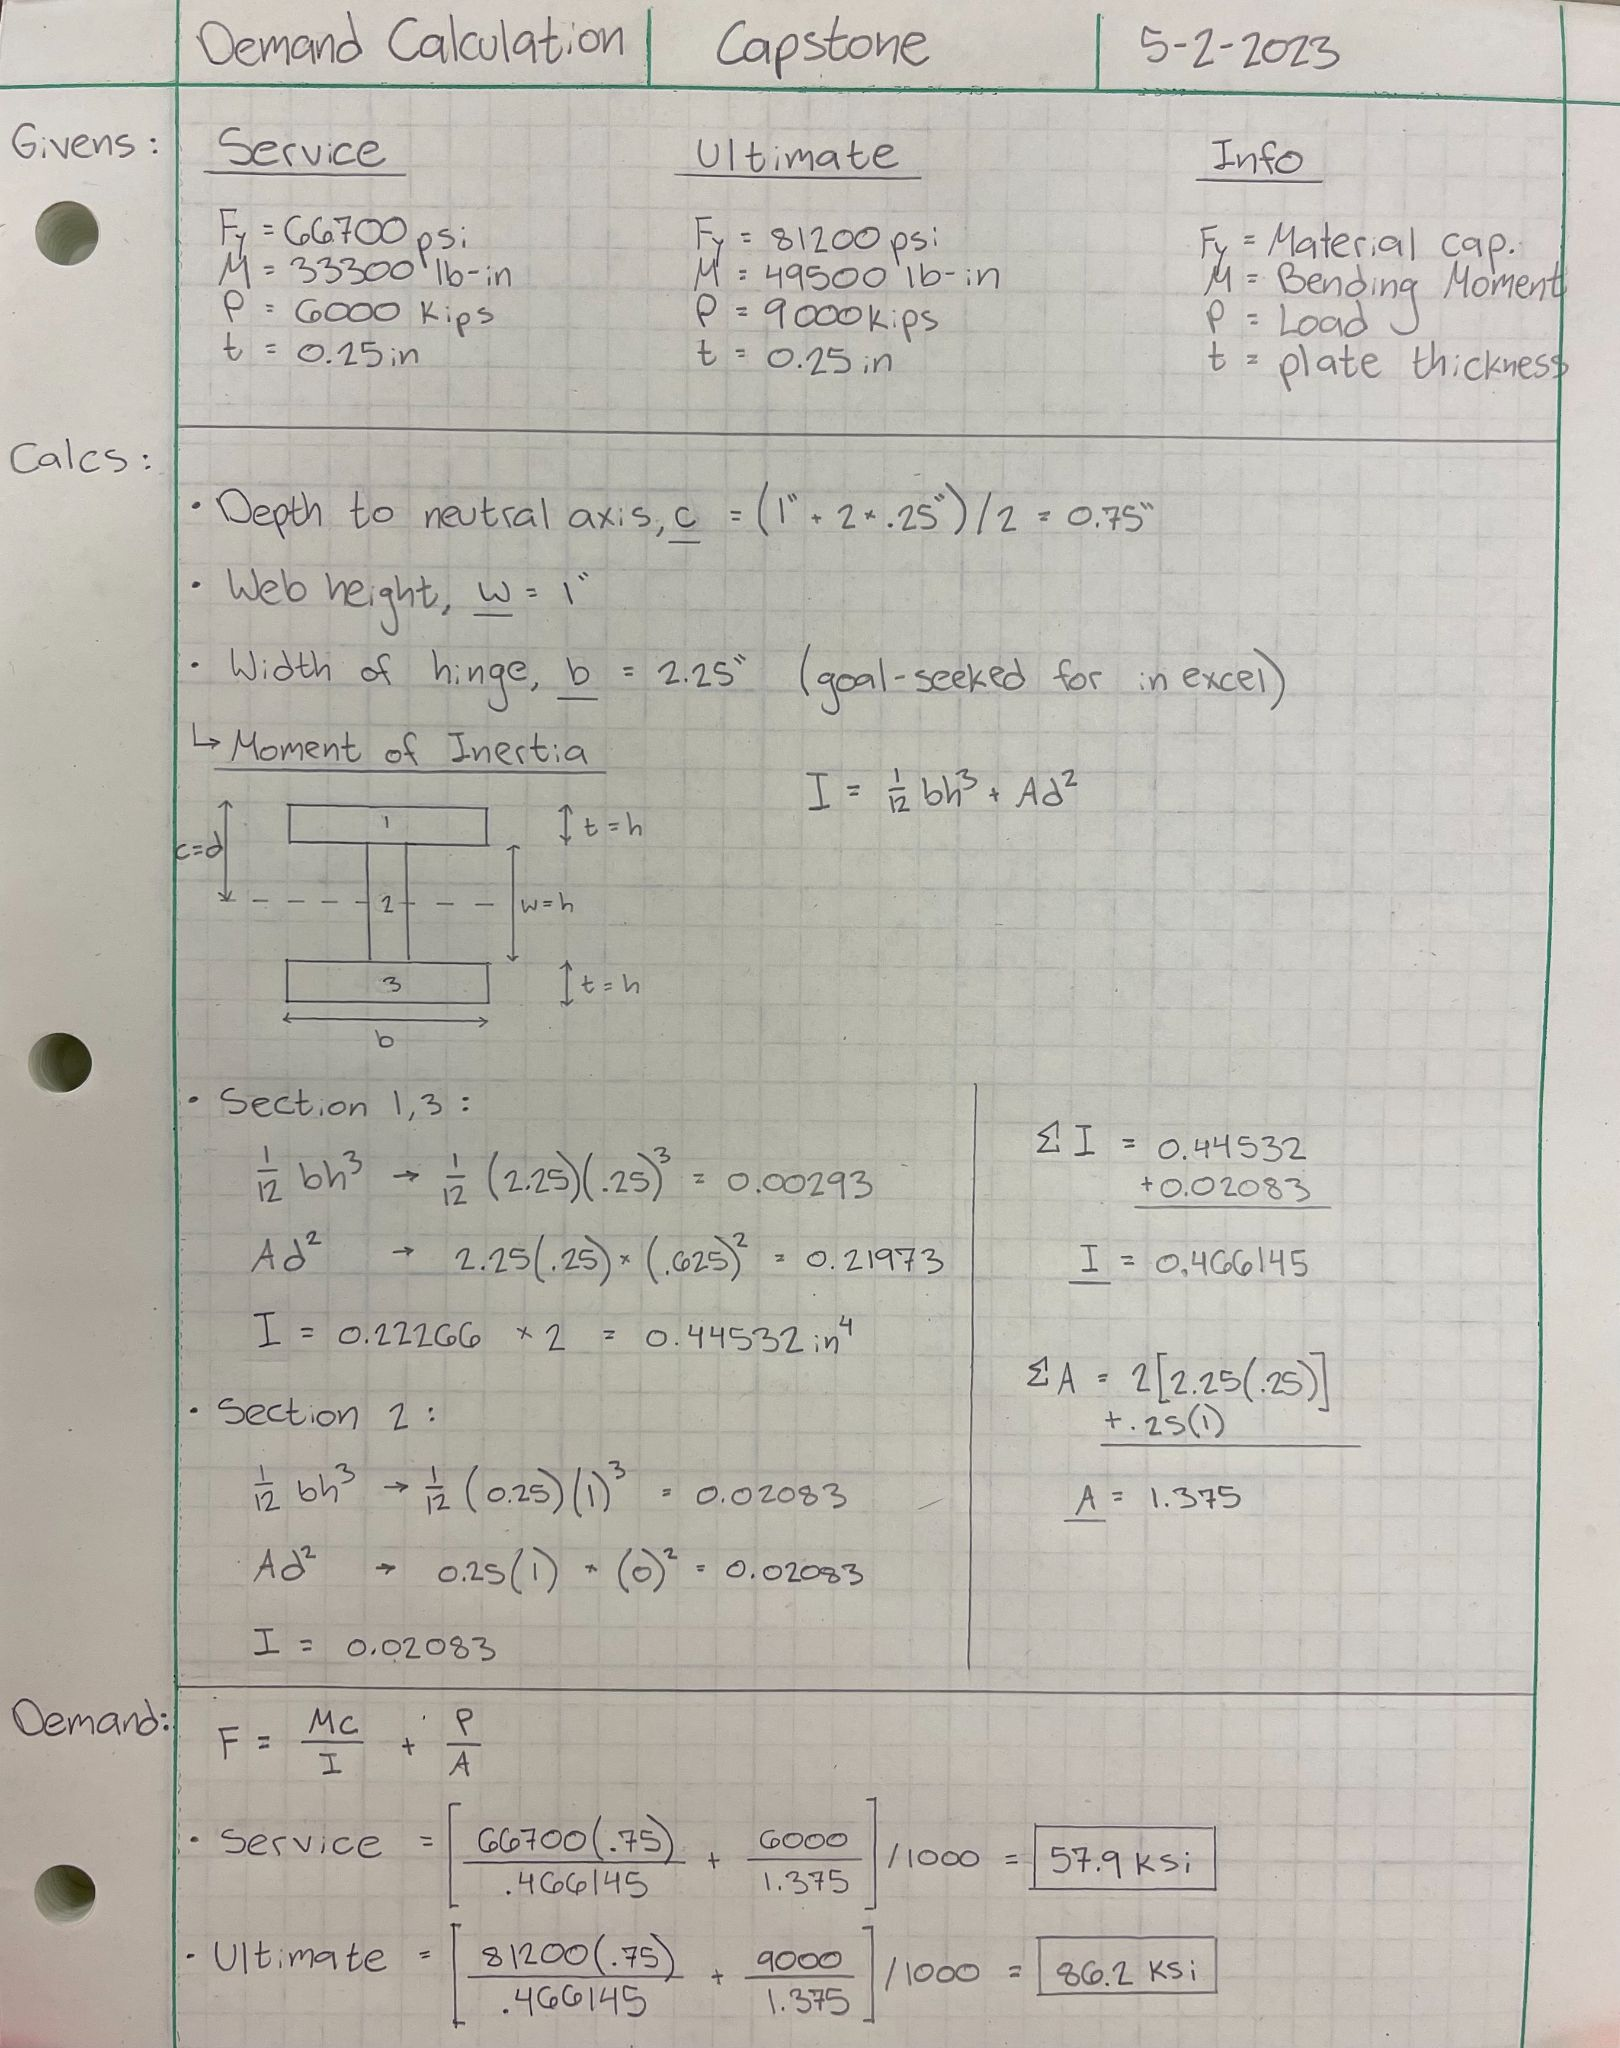 Demand Calculation | Capstone | 5-2-2023
Givens: Service Ultimate Info
Fy = 66700 psi Fy = 81200 psi Fy = Material cap.
M = 33300 lb-in M = 49500 lb-in M = Bending Moment
P = 6000 Kips P = 9000 Kips P = Load
t = 0.25 in t = 0.25 in t = plate thickness
Calcs:
• Depth to neutral axis, c = (1" + 2 * .25")/2 = 0.75"
• Web height, w = 1"
• Width of hinge, b = 2.25" (goal-seeked for in excel)
↳ Moment of Inertia
I = 1/12 bh³ + Ad²
1 t = h
c=d
2 w=h
3 t = h
b
• Section 1,3:
1/12 bh³ → 1/12 (2.25)(.25)³ = 0.00293
Ad² → 2.25(.25) * (.625)² = 0.21973
I = 0.22266 × 2 = 0.44532 in⁴
• Section 2:
1/12 bh³ → 1/12 (0.25)(1)³ = 0.02083
Ad² → 0.25(1) * (0)² = 0.02083
I = 0.02083
ΣI = 0.44532
+0.02083
I = 0.466145
ΣA = 2[2.25(.25)]
+ .25(1)
A = 1.375
Demand: F = MC/I + P/A
• Service = [66700(.75)/.466145 + 6000/1.375] /1000 = 57.9 ksi
• Ultimate = [81200(.75)/.466145 + 9000/1.375] /1000 = 86.2 ksi